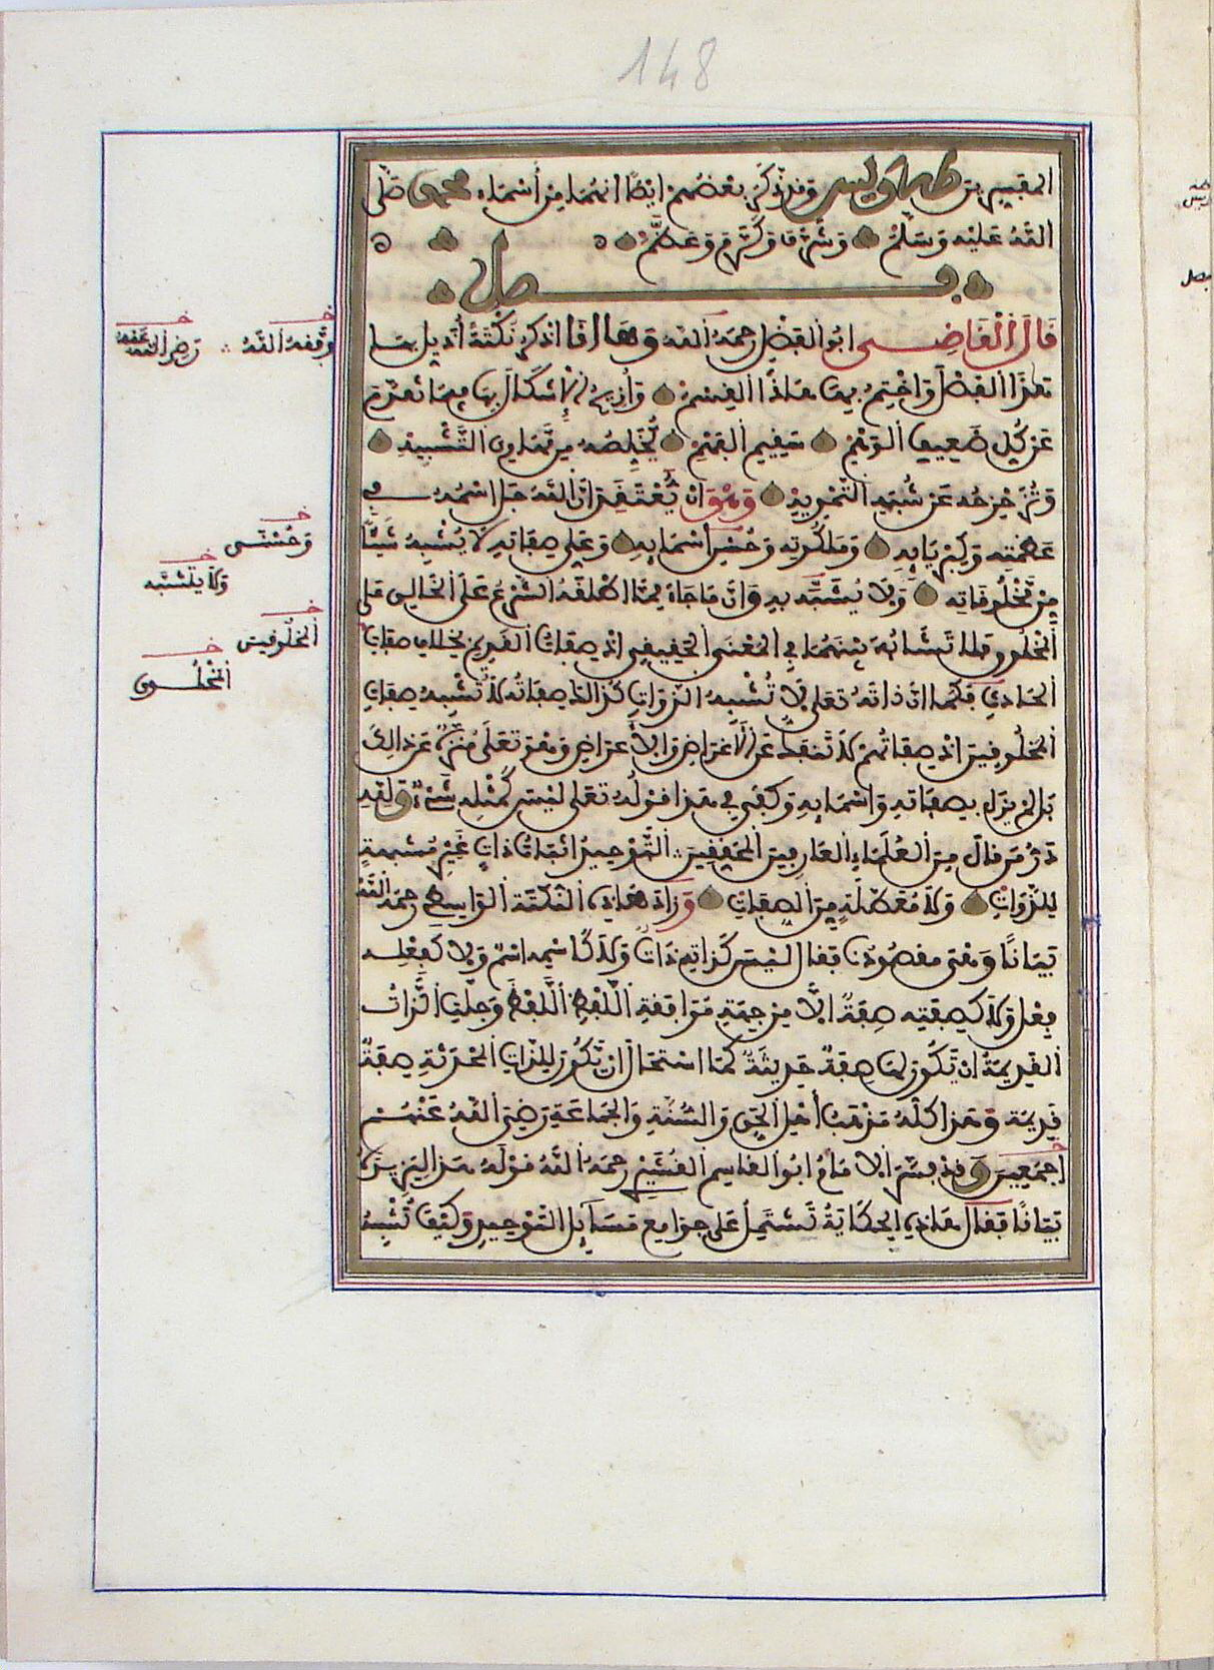 148
المفسرين طه ويس وقد ذكر بعضهم ايضا انهما من أسماء محمد صلى
الله عليه وسلم وشرف وكرم وعظم
فصل
قال القاضي ابو الفضل رحمه الله وها انا اذكر نكتة أذيل بها
هذا الفصل واختم بها هاذا القسم وأزيح الإشكال بها فيما تقدم
عن كل ضعيف الوهم سقيم الفهم تخلصه من مهاوي التشبيه
وتزحزحه عن شبه التمويه وهو ان يعتقد ان الله جل اسمه في
عظمته وكبريايه وملكوته وحسن أسمايه وعلي صفاته لا يشبه شيئا
من مخلوقاته ولا يشبه به وان ما جاء مما اطلقه الشرع على الخالق وعلى
المخلوق فلا تشابه بينهما في المعنى الحقيقي اذ صفات القديم بخلاف صفات
الحادث فكما ان ذاته تعلى لا تشبه الذوات كذالك صفاته لا تشبه صفات
المخلوقين اذ صفاتهم لا تنفك عن الاغراض والاعراض وهو تعلى منزه عن ذالك
بل لم يزل بصفاته واسمايه وكفى في هذا قوله تعلى ليس كمثله شيء ولله
در من قال من العلماء العارفين المحققين التوحيد اثبات ذات غير مشبهة
للذوات ولا معطلة من الصفات وزاد هاذه النكتة الواسطي رحمه الله
بيانا وهي مقصودنا فقال ليس كذاته ذات ولا كاسمه اسم ولا كفعله
فعل ولا كصفته صفة الا من جهة موافقة اللفظ اللفظ وجلت الذات
القديمة ان تكون لها صفة حديثة كما استحال ان تكون للذات المحدثة صفة
قديمة وهذا كله مذهب أهل الحق والسنة والجماعة رضي الله عنهم
اجمعين وقد فسر الامام ابو القاسم القشيري رحمه الله قوله هذا ليزيده
بيانا فقال هاذه الحكاية تشتمل على جوامع مسايل التوحيد وكيف تشبه
وفقه الله
رضي الله عنه
وحسنى
ولا يتشبه
المخلوقين
المخلوق